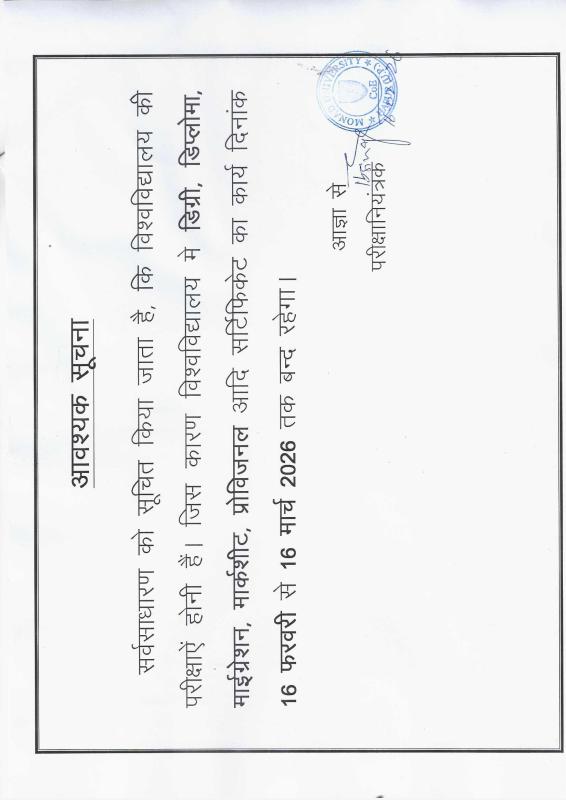 आवश्यक सूचना
सर्वसाधारण को सूचित किया जाता है, कि विश्वविद्यालय की
परीक्षाएं होनी हैं। जिस कारण विश्वविद्यालय मे डिग्री, डिप्लोमा,
माईग्रेशन, मार्कशीट, प्रोविजनल आदि सर्टिफिकेट का कार्य दिनांक
16 फरवरी से 16 मार्च 2026 तक बन्द रहेगा।
आज्ञा से
परीक्षानियंत्रक
MONAD UNIVERSITY
CoE